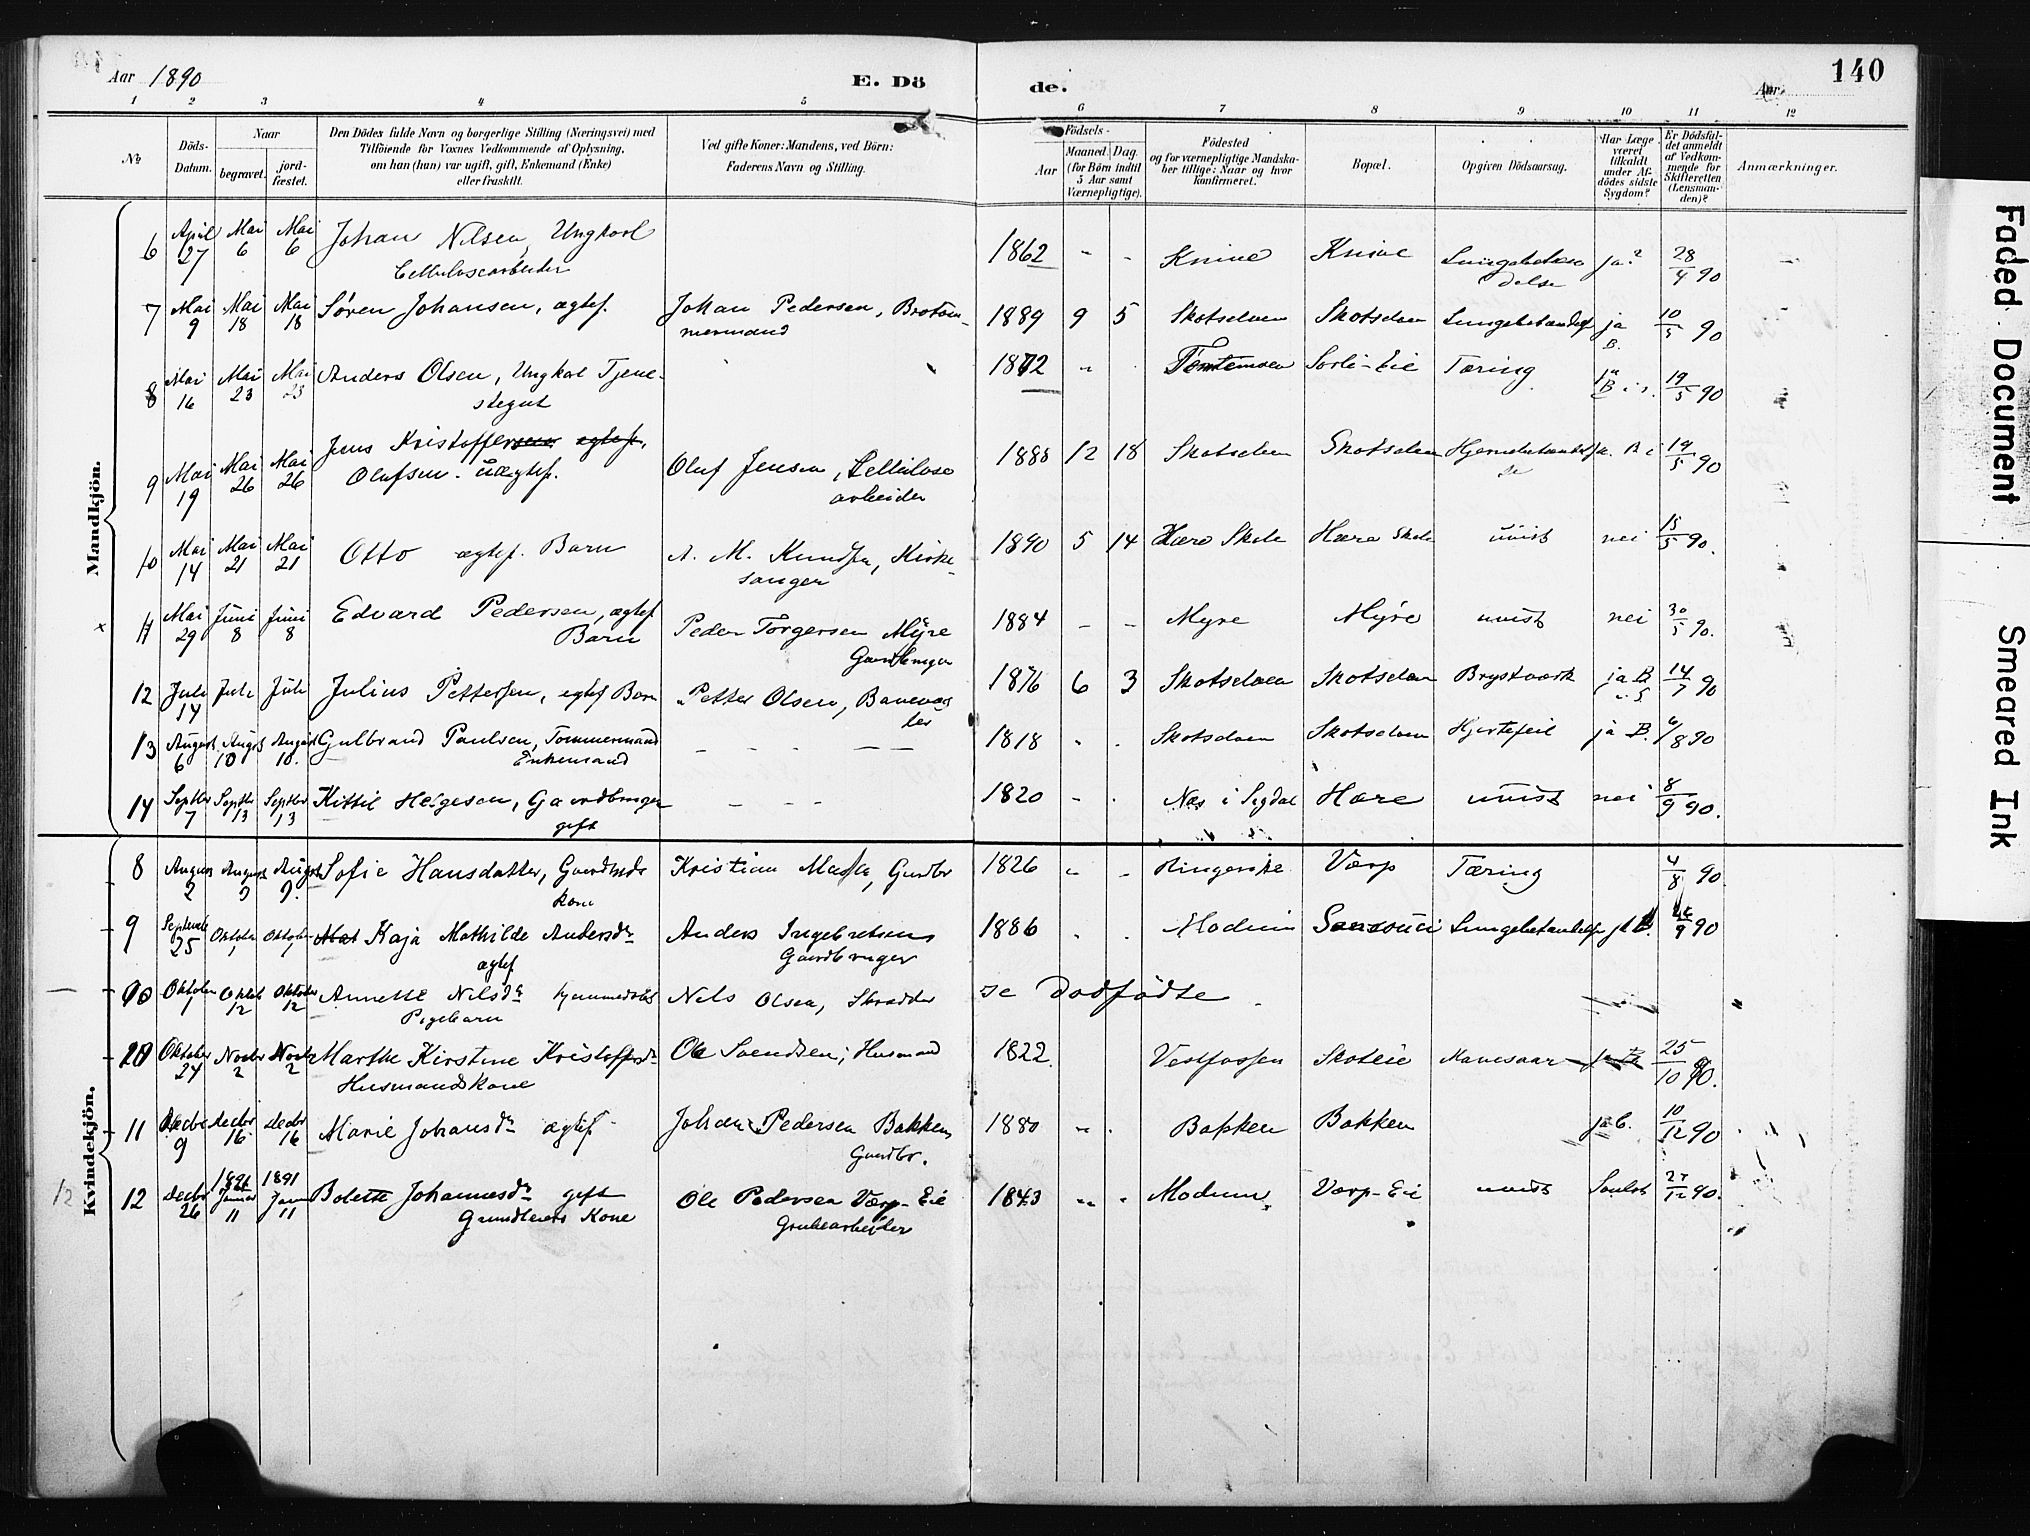 Aar 1890
E. Dö de.
Aar
140
1 2 3 4 5 6 7 8 9 10 11 12
No
Döds-Datum.
Naar
begravet.
jordfæstet.
Den Dödes fulde Navn og borgerlige Stilling (Næringsvei) med
Tilföiende for Voxnes Vedkommende af Oplysning,
om han (hun) var ugift, gift, Enkemand (Enke)
eller fraskilt.
Ved gifte Koner: Mandens, ved Börn:
Faderens Navn og Stilling.
Födsels-
Aar
Maaned. Dag.
(for Börn indtil
5 Aar samt
Værnepligtige).
Födested
og for værnepligtige Mandska-
ber tillige: Naar og hvor
konfirmeret.
Bopæl.
Opgiven Dödsaarsag.
Har Læge
været
tilkaldt
under Af-
dödes sidste
Sygdom?
Er Dödsfal-
det anmeldt
af Vedkom-
mende for
Skifteretten
(Lensman-
den)?
Anmærkninger.
Mandkjön.
6 April 27 Mai 6 Mai 6 Johan Nilsen, Ungkarl 1862 - - Knive Knive ja? 28/4 90
Cellulosearbeider
7 Mai 9 Mai 18 Mai 18 Søren Johansen, ægtef. Johan Pedersen, 1889 9 5 Skotselven Skotselven Lungebetændelse ja B. 10/5 90
8 Mai 16 Mai 23 Mai 23 Anders Olsen, Ungkar Tjene- 1872 Sorli-Eie Tæring 19/5 90
stegut
9 Mai 19 Mai 26 Mai 26 Jens Kristoffersen ægtef. Oluf Jensen, Cellulose 1888 12 18 Skotselven Skotselven 19/5 90
Olufsen. uægtef. arbeider
10 Mai 14 Mai 21 Mai 21 Otto ægtef. Barn A. M. Knudsen, Kirke- 1890 5 14 Hære Skole Hære Skole uvist nei 15/5 90.
sanger
x 11 Mai 29 Juni 8 Juni 8 Edvard Pedersen, ægtef Peder Torgersen Myre 1884 - - Myre Myre uvist nei 30/5 90.
Barn Gaardbruger
12 Juli 14 Juli Juli Julius Pettersen, ægtef Barn Petter Olsen, 1876 6 3 Skotselven Skotselven Brystværk ja B 14/7 90
13 August 6 August 10 August 10. Gulbrand Paulsen, Tømmermand — — — — 1818 Skotselven Skotselven Hjertefeil ja B. 6/8 90
Enkemand
14 Septbr 7 Septbr 13 Septbr 13 Kittil Helgesen, Gaardbruger - - - 1820 Næs i Sigdal Hære uvist nei 8/9 90.
gift
Kvindekjön.
8 August 2 August 9 August 9. Sofie Hansdatter, Gaardbrds Kristian Gardbr 1826 Ringerike Værp Tæring 4/8 90.
kone
9 Septembr 25 Oktober Oktober Kaja Mathilde Andersdr Anders Ingebretsen 1886 Modum Sanssouci Lungebetændelse 90
ægtef Gaardbruger
10 Oktober 1 Oktob 12 Oktober 12 Annette Nilsdr hjemmedøbt Nels Olsen, Skrædder se Dødfødte
Pigebarn
Oktober 24 Novbr 2 Novbr 2 Marthe Kirstine Kristoffersdr Ole Svendsen, Husmand 1822 Vestfossen Skoteie Mavesaar 25/10 90.
Husmandskone
11 Decbr 9 decbr 16 decbr 16 Marie Johansdr ægtef Johan Pedersen Bakken 1880 Bakken Bakken ja C. 10/12 90
Gaardbr.
12 12 Decbr 26 1891 Januar 11 1891 Janr 11 Bolette Johannesdr gift Ole Pedersen Værp-Eie 1843 Modum Værp-Eie uvist 27/12 90.
Kone Grubearbeider
Faded Document Smeared Ink